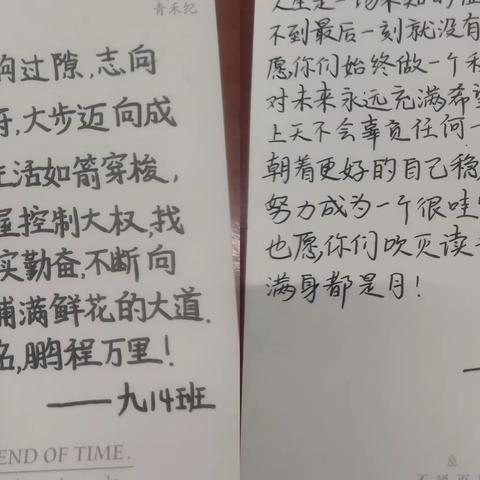 青禾纪
驹过隙,志向
大步迈向成
生活如箭穿梭,
握控制大权,找
实勤奋,不断向
铺满鲜花的大道.
名,鹏程万里!
——九14班
END OF TIME.
人生是一场未知的
不到最后一刻就没有
愿你们始终做一个
对未来永远充满希望
上天不会辜负任何一
朝着更好的自己稳
努力成为一个很哇
也愿,你们吹灭读
满身都是月!